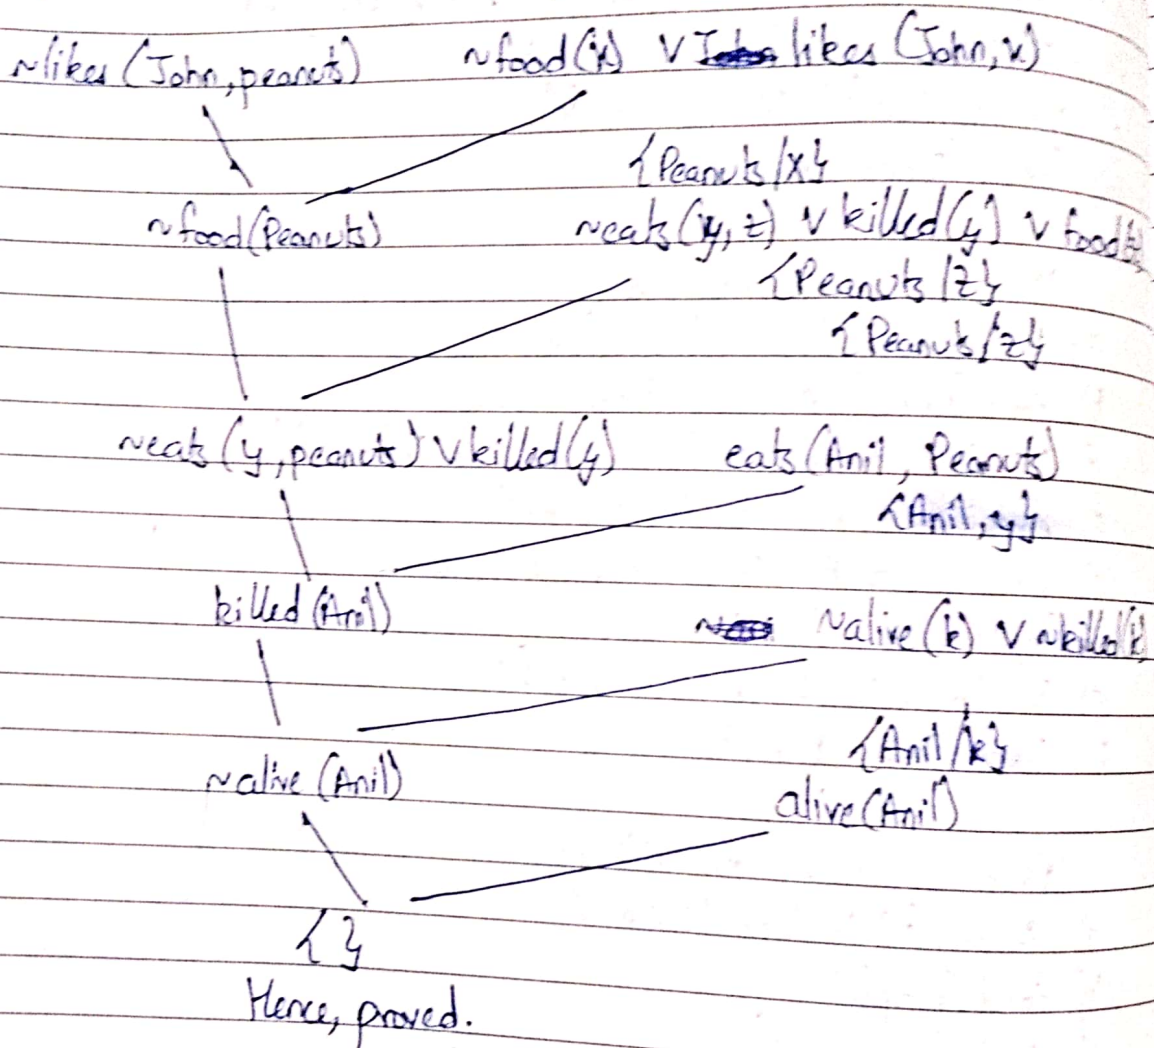 ~likes (John, peanuts) ~food(x) V likes (John, x)
{Peanuts/x}
~food(Peanuts) ~eats(y, z) V killed(y) V food(z)
{Peanuts/z}
{Peanuts/z}
~eats (y, peanuts) V killed(y) eats (Anil, Peanuts)
{Anil, y}
killed (Anil) ~alive(k) V ~killed(k)
{Anil/k}
~alive (Anil)
alive(Anil)
{ }
Hence, proved.